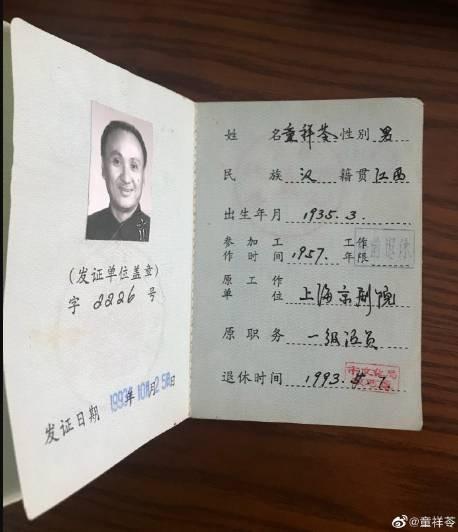 (发证单位盖章)
字 2226 号
发证日期 1993年10月25日
姓名 童祥苓 性别 男
民族 汉 籍贯 江西
出生年月 1935.3.
参加工作时间 1957. 工作年限
原工作单位 上海京剧院
原职务 一级演员
退休时间 1993.
@童祥苓